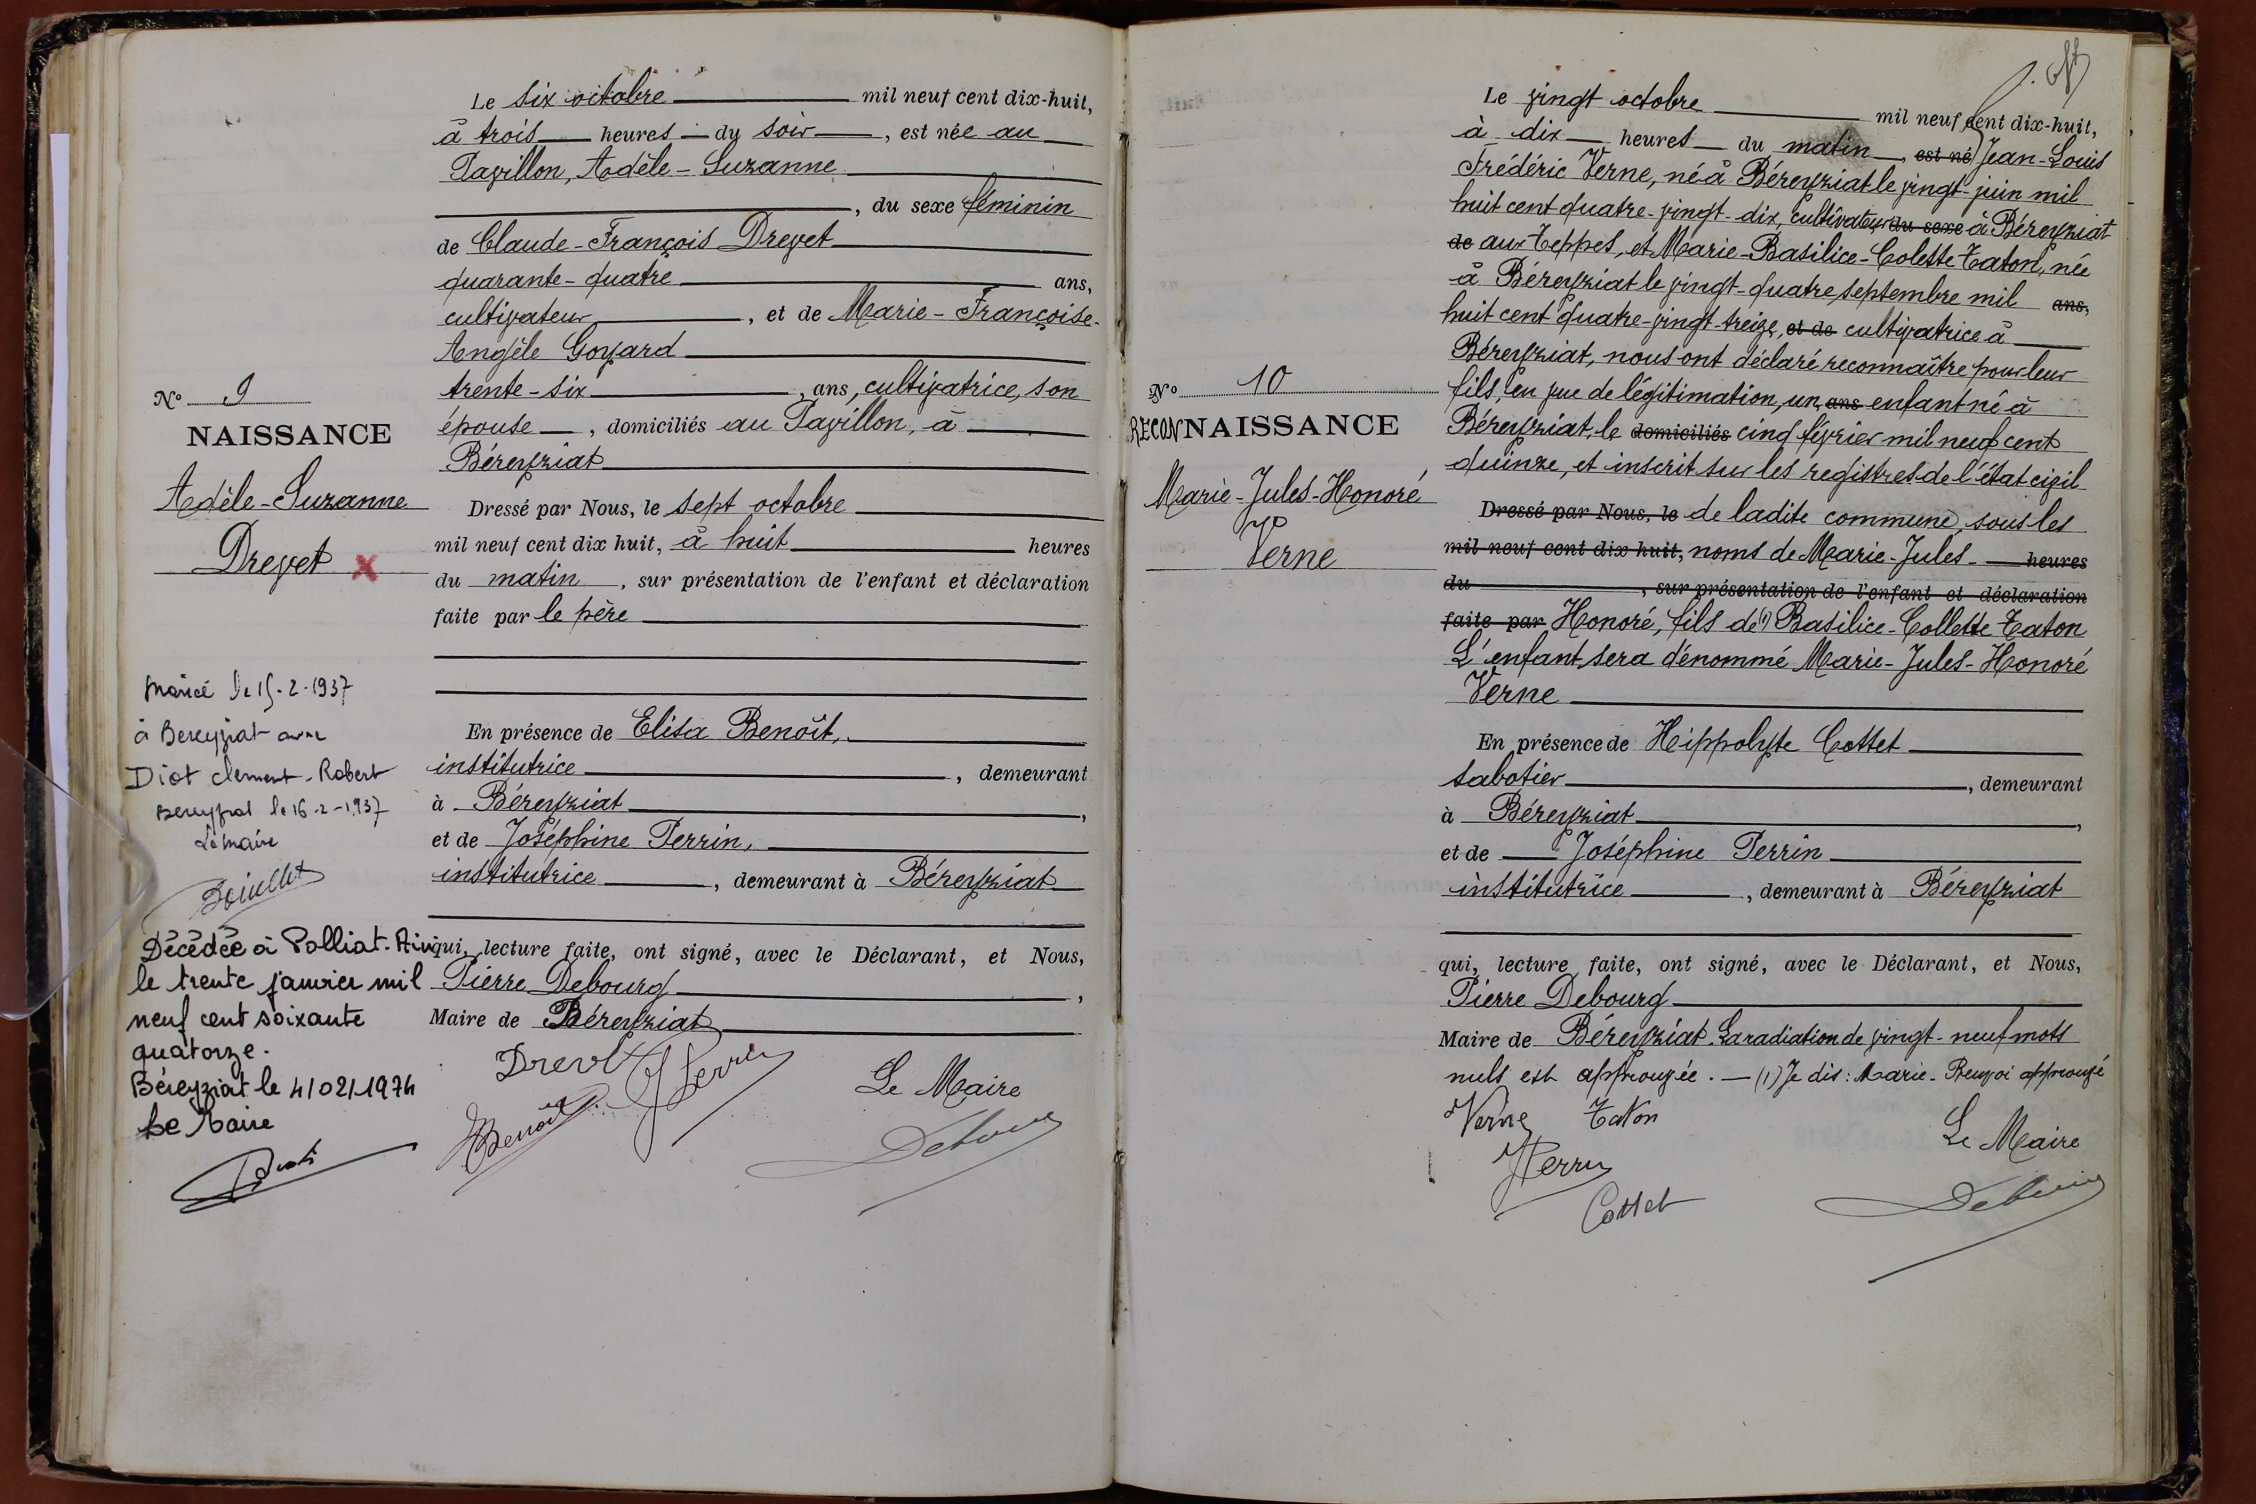 Le six octobre mil neuf cent dix-huit,
à trois heures du soir, est née au
Pavillon, Adèle-Suzanne
, du sexe féminin
de Claude-François Drevet
quarante-quatre ans,
cultivateur, et de Marie-Françoise-
Angèle Goyard
trente-six, ans, cultivatrice, son
épouse, domiciliés au Pavillon, à
Béreyziat
Dressé par Nous, le sept octobre
mil neuf cent dix huit, à huit heures
du matin, sur présentation de l'enfant et déclaration
faite par le père
En présence de Elisa Benoît,
institutrice, demeurant
à Béreyziat,
et de Joséphine Perrin,
institutrice, demeurant à Béreyziat
qui, lecture faite, ont signé, avec le Déclarant, et Nous,
Pierre Debourg,
Maire de Béreyziat
Drevet
JPerrin
EBenoît
Le Maire
Debourg
No 9
NAISSANCE
Adèle-Suzanne
Drevet X
Mariée le 15-2-1937
à Bereyziat avec
Diot clement-Robert
Bereyziat le 16-2-1937
Le maire
Décédée à Polliat-Ain
le trente janvier mil
neuf cent soixante
quatorze.
Béreyziat le 4/02/1974
Le Maire
Le vingt octobre mil neuf cent dix-huit,
à dix heures du matin, est né Jean-Louis
Frédéric Verne, né à Béreyziat le vingt-juin mil
huit cent quatre-vingt-dix, cultivateur du sexe à Béreyziat
de aux Teppes, et Marie-Basilice-Colette Taton, née
à Béreyziat le vingt-quatre septembre mil ans,
huit cent quatre-vingt-treize, et de cultivatrice à
Béreyziat, nous ont déclaré reconnaître pour leur
fils, en vue de légitimation, un, ans enfant né à
Béreyziat, le domiciliés cinq février mil neuf cent
quinze, et inscrit sur les registres de l'état civil
Dressé par Nous, le de ladite commune, sous les
mil neuf cent dix huit, noms de Marie-Jules- heures
du , sur présentation de l'enfant et déclaration
faite par Honoré, fils de (1) Basilice-Collette Taton
L'enfant sera dénommé Marie-Jules-Honoré
Verne
En présence de Hippolyte Cottet
sabotier, demeurant
à Béreyziat,
et de Joséphine Perrin
institutrice, demeurant à Béreyziat
qui, lecture faite, ont signé, avec le Déclarant, et Nous,
Pierre Debourg
Maire de Béreyziat. La radiation de vingt-neuf mots
nuls est approuvée. — (1) Je dis: Marie- Renvoi approuvé
Verne Taton
Le Maire
JPerrin
Cottet
Debourg
No 10
RECONNAISSANCE
Marie-Jules-Honoré
Verne